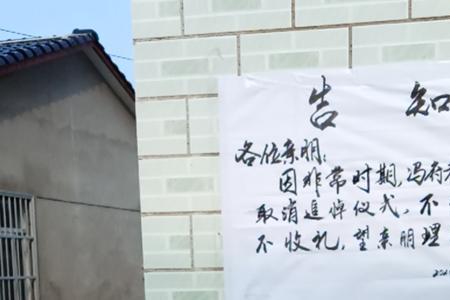 告知
各位亲朋：
因非常时期，冯府
取消追悼仪式，不
不收礼，望亲朋理
202